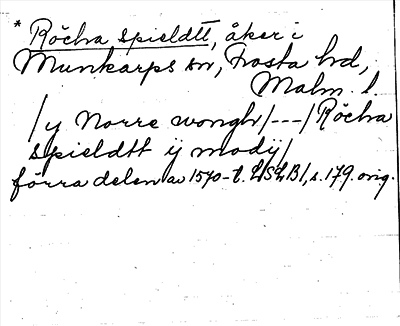 * Röcha spieldtt, åker i
Munkarps sn, Frosta hd,
Malm. l.
/y Norre wongh/---/Röcha
spieldtt ij modij/
förra delen av 1570-t. LSLB1, s. 179. orig.